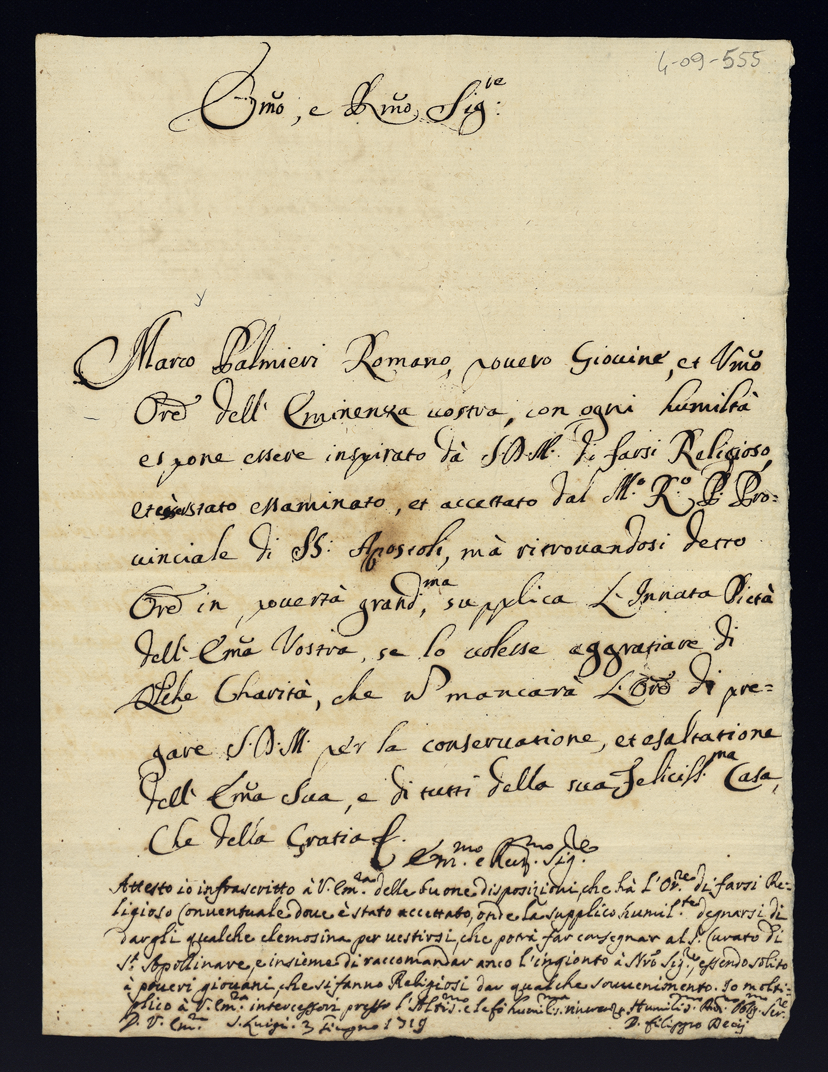 4-09-555
Em̃o, e Rm̃o Sig.re
Marco Palmieri Romano, povero Giovine, et Um̃o
Ore dell' Eminenza vostra, con ogni humiltà
espone essere inspirato dà S.D.M. di farsi Religioso,
stato essaminato, et accettato dal M.o R.o P. Pro=
vinciale di SS: Apostoli, mà ritrovandosi detto
Ore in povertà grand.ma, supplica L'Innata Pietà
dell' Em̃a Vostra, se lo volesse aggratiare di
qlche Charità, che ñ mancarà L'Ore di pre=
gare S.D.M. per la conservatione, et esaltatione
dell' Em̃a Sua, e di tutti della sua feliciss.ma Casa,
Che della Gratia
Em.mo e Rev.mo Sig.re
Attesto io infrascritto à V. Em.za delle buone disposizioni, che hà l'Or.re di farsi Re=
ligioso Conventuale dove è stato accettato, onde la supplico humil.te degnarsi di
dargli qualche elemosina per vestirsi, che potrà far consegnar al S. Curato di
S.t Apollinare, e insieme di raccomandar anco l'ingionto à Nrõ Sig.re, essendo solito
à poveri giovani, che si fanno Religiosi dar qualche sovvenimento. Io molti-
plico à V. Em.za intercessori presso l'Altis.mo e le fò humilis.ma riverenza
D. V. Em.za S. Luigi. 3 Giugno 1719 D. Filippo Decij